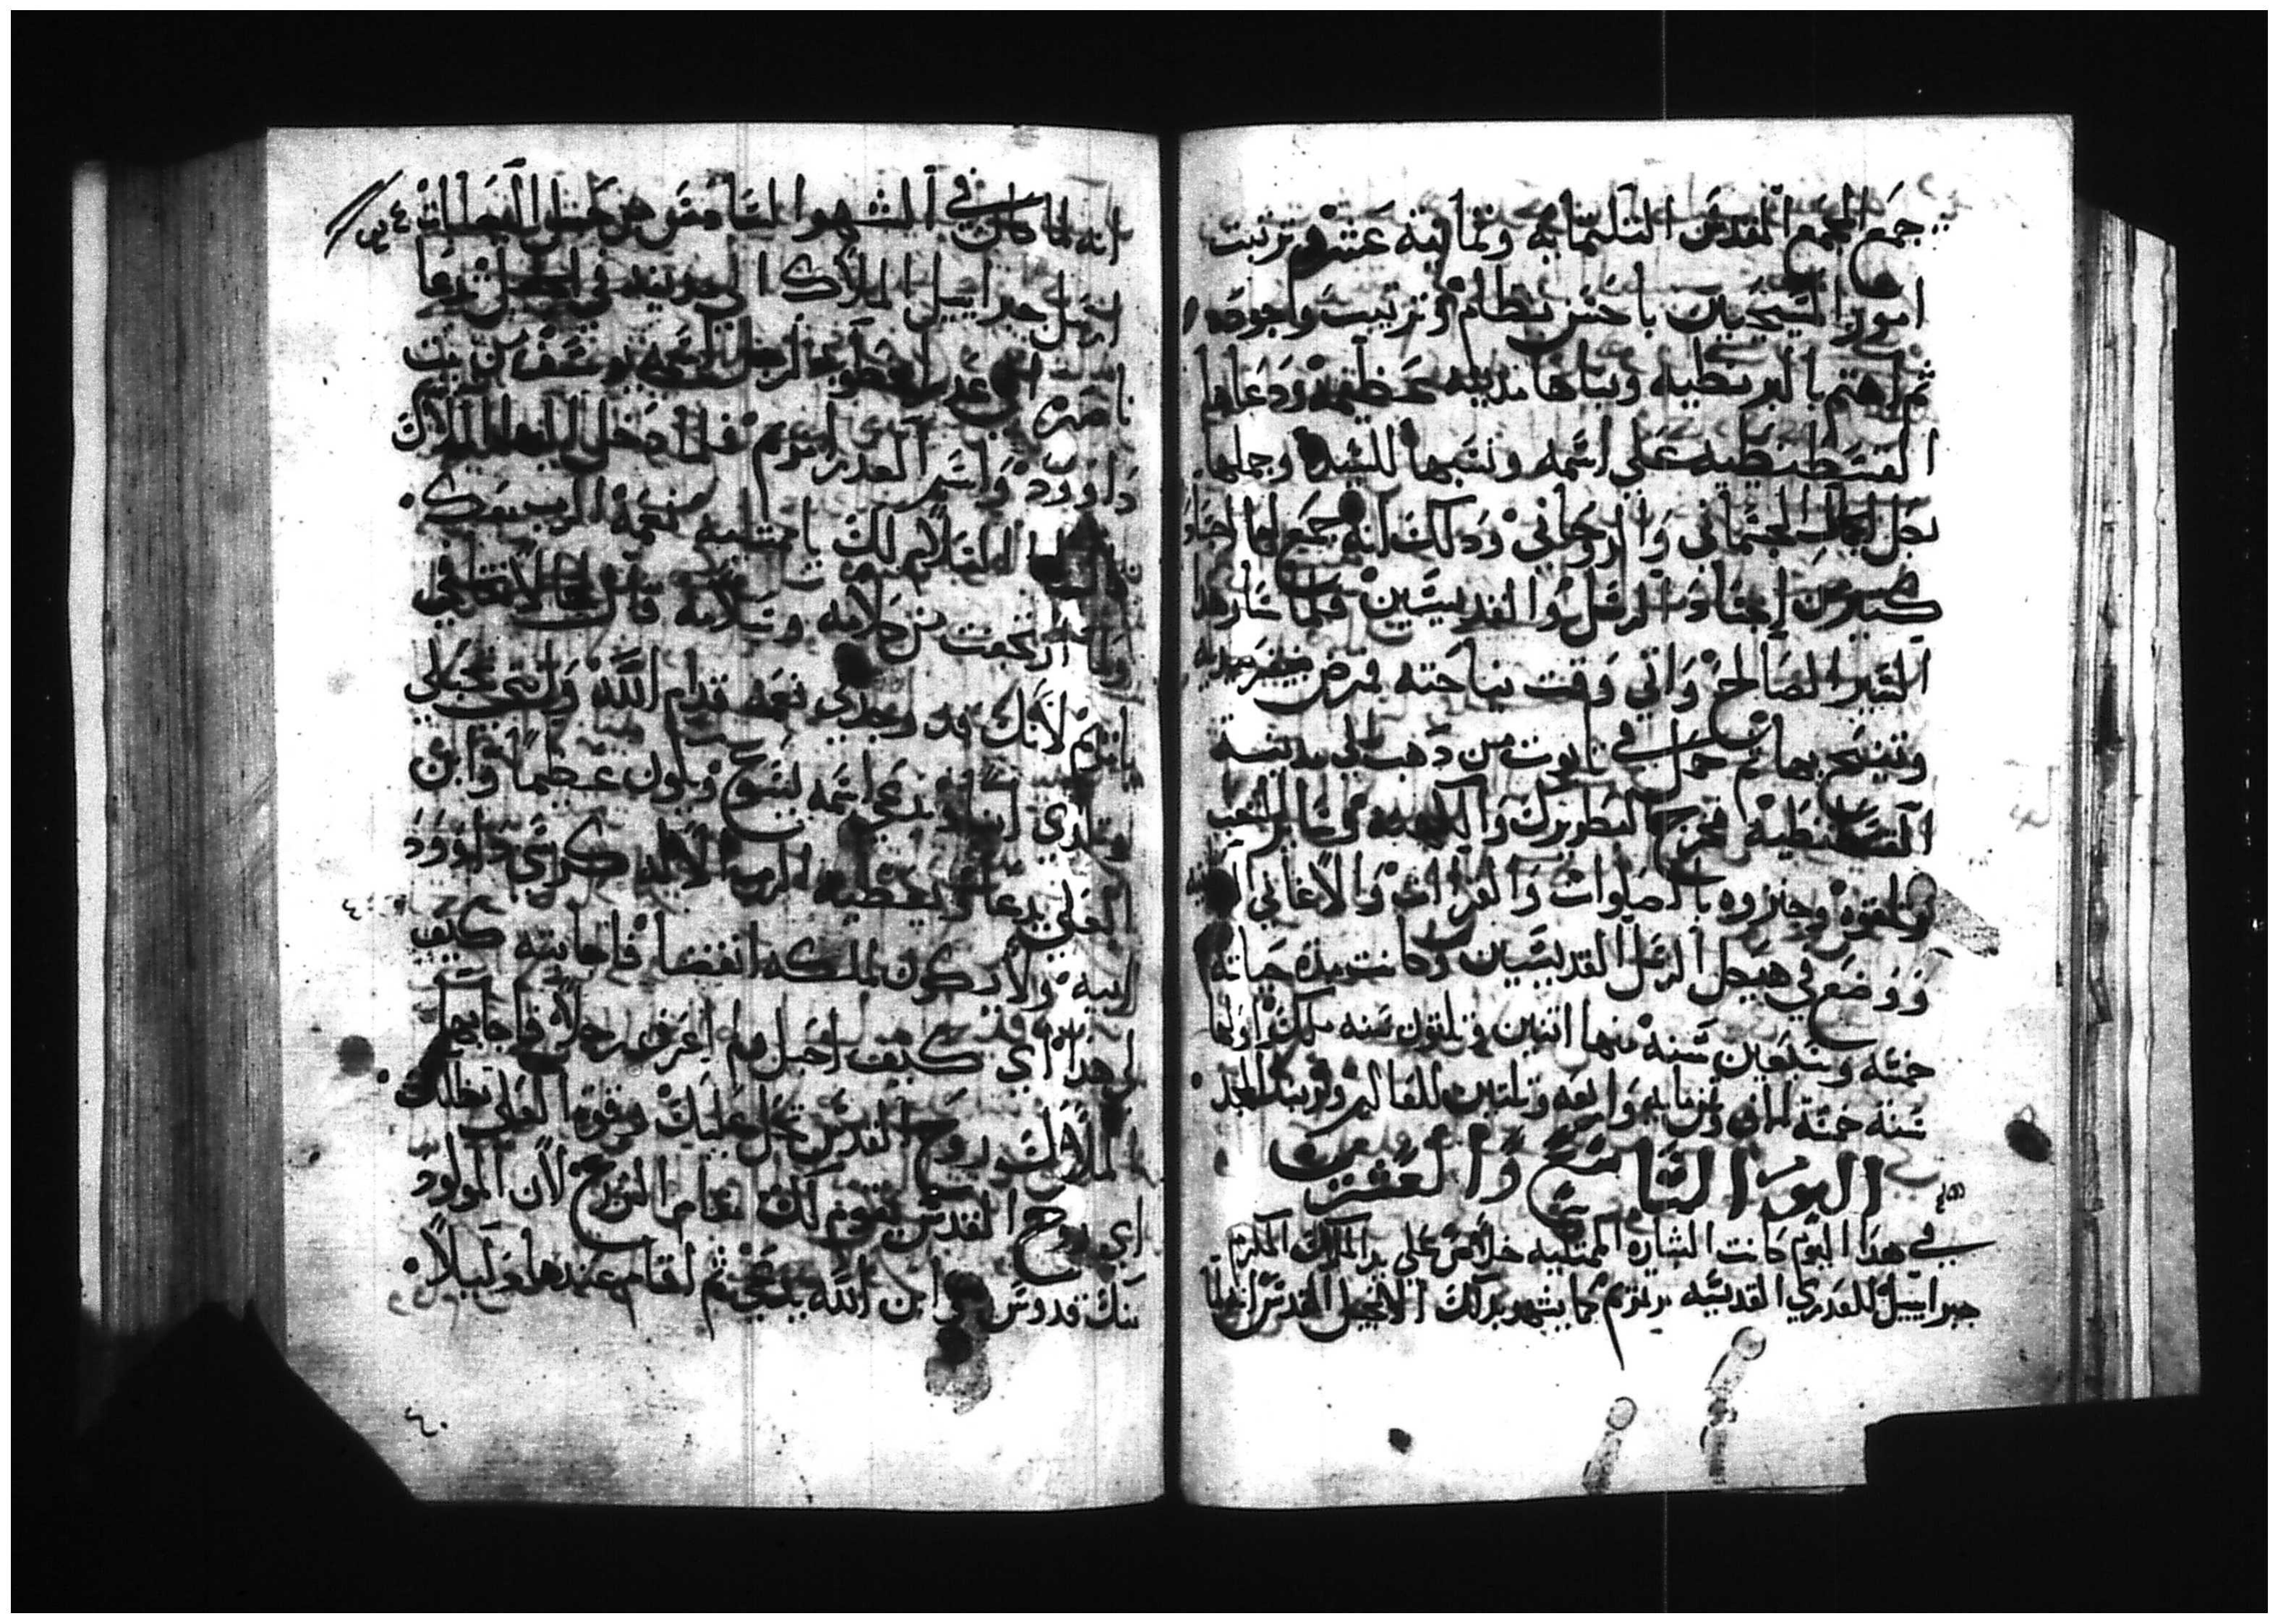 جمع المجمع المقدس التلتمايه وتمانيه عشر ورتبت
امور المسيحيين باحسن نظام وترتيب واجوده
ثم اهتم بالبرنطيه وبناها مدينه عظيمه ودعاها
القسطنطينيه على اسمه ونسبها للسيده وجملها
بكل الجمال الجسماني والروحاني ودلك انه جمع لها اجساد
كتير من اجساد الرسل والقديسين فلما سار هدا
السير الصالح واتي وقت نياحته فمرض
وتنيح بها ثم حمل في تابوت من دهب الى مدينة
القسطنطنيه فخرج البطريرك والكهنه وساير الشعب
وتلقوه وجنزوه بالصلوات والقراات والاغاني
ووضع في هيكل الرسل القديسين وكانت مدة حياته
خمسه وسبعين سنه منها اتنين وتلتون سنه ملك واولها
سنة خمسة الاف وتمنمايه واربعه وتلتين للعالم ولربنا المجد
اليوم التاسع والعشرين
في هدا اليوم كانت البشاره الممتليه خلاص على يد الملاك المكرم
جبراييل للعدري القديسه مرتمريم كما يشهد بدلك الانجيل المقدس
انه لما كان في الشهر السادس من حبل اليصابات
ارسل جبراييل الملاك الى مدينه في الجليل تدعا
ناصره الى عدرا مخطوبه لرجل اسمه يوسف من بيت
داوود واسم العدرا مريم فلما دخل اليها الملاك
قال لها السلام لك يا ممتليه نعمة الرب معك
ولما ارتجفت من كلامه وسلامه قال لها لا تخافي
يامريم لانك قد وجدتي نعمه قدام الله وانتي تحبلي
وتلدي ابنا ويدعي اسمه يسوع ويكون عظيما وابن
العلي يدعا ويعطيه الرب الاله كرسي داوود
ابيه ولا يكون لملكه انقضا فاجابته كيف
لي هدا اي كيف احبل ولم اعرف رجلا فاجابها
الملاك روح القدس تحل عليك وقوة العلي تظلك
اي روح القدس يقوم لك مقام الزرع لان المولود
منك قدوس وابن الله يدعي ثم اقام عندها قليلا
٤٠